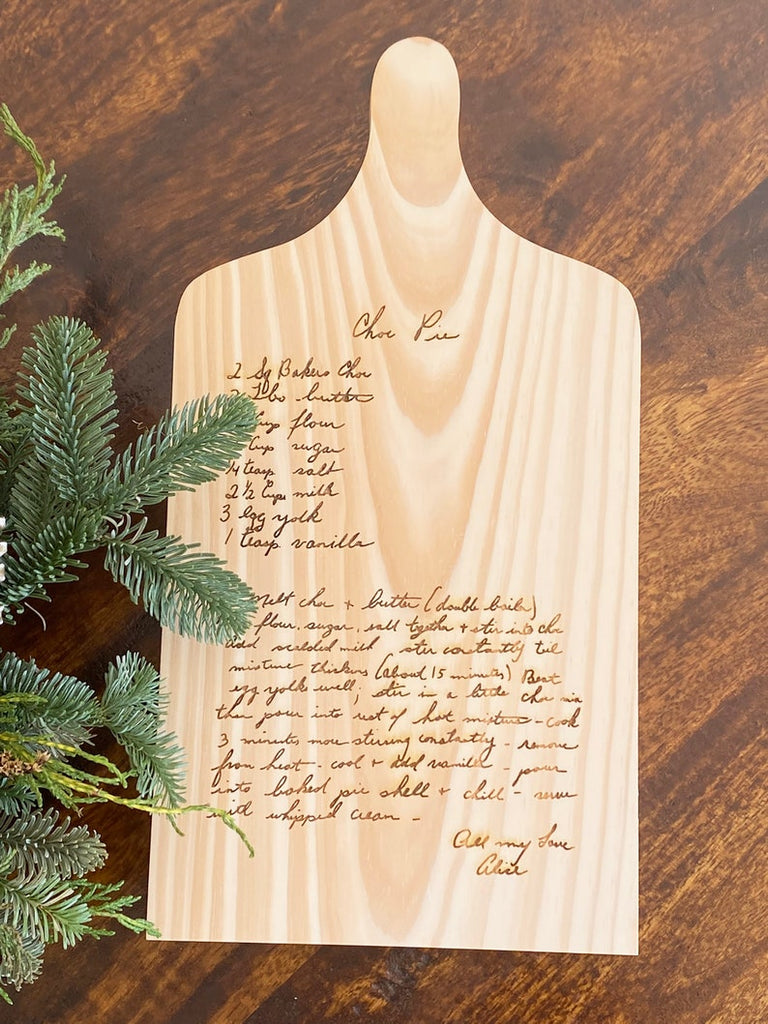 Choc Pie
2 Sq Bakers Choc
Tbs butter
Cup flour
Cup sugar
1/4 teasp salt
2 1/2 Cups milk
3 egg yolk
1 teasp vanilla
Melt choc + butter (double boiler)
flour, sugar, salt together + stir into choc
add scalded milk stir constantly til
mixture thickens (about 15 minutes) Beat
egg yolks well; stir in a little choc mix
then pour into rest of hot mixture - cook
3 minutes more stirring constantly - remove
from heat - cool + add vanilla - pour
into baked pie shell + chill - serve
with whipped cream -
All my Love
Alice